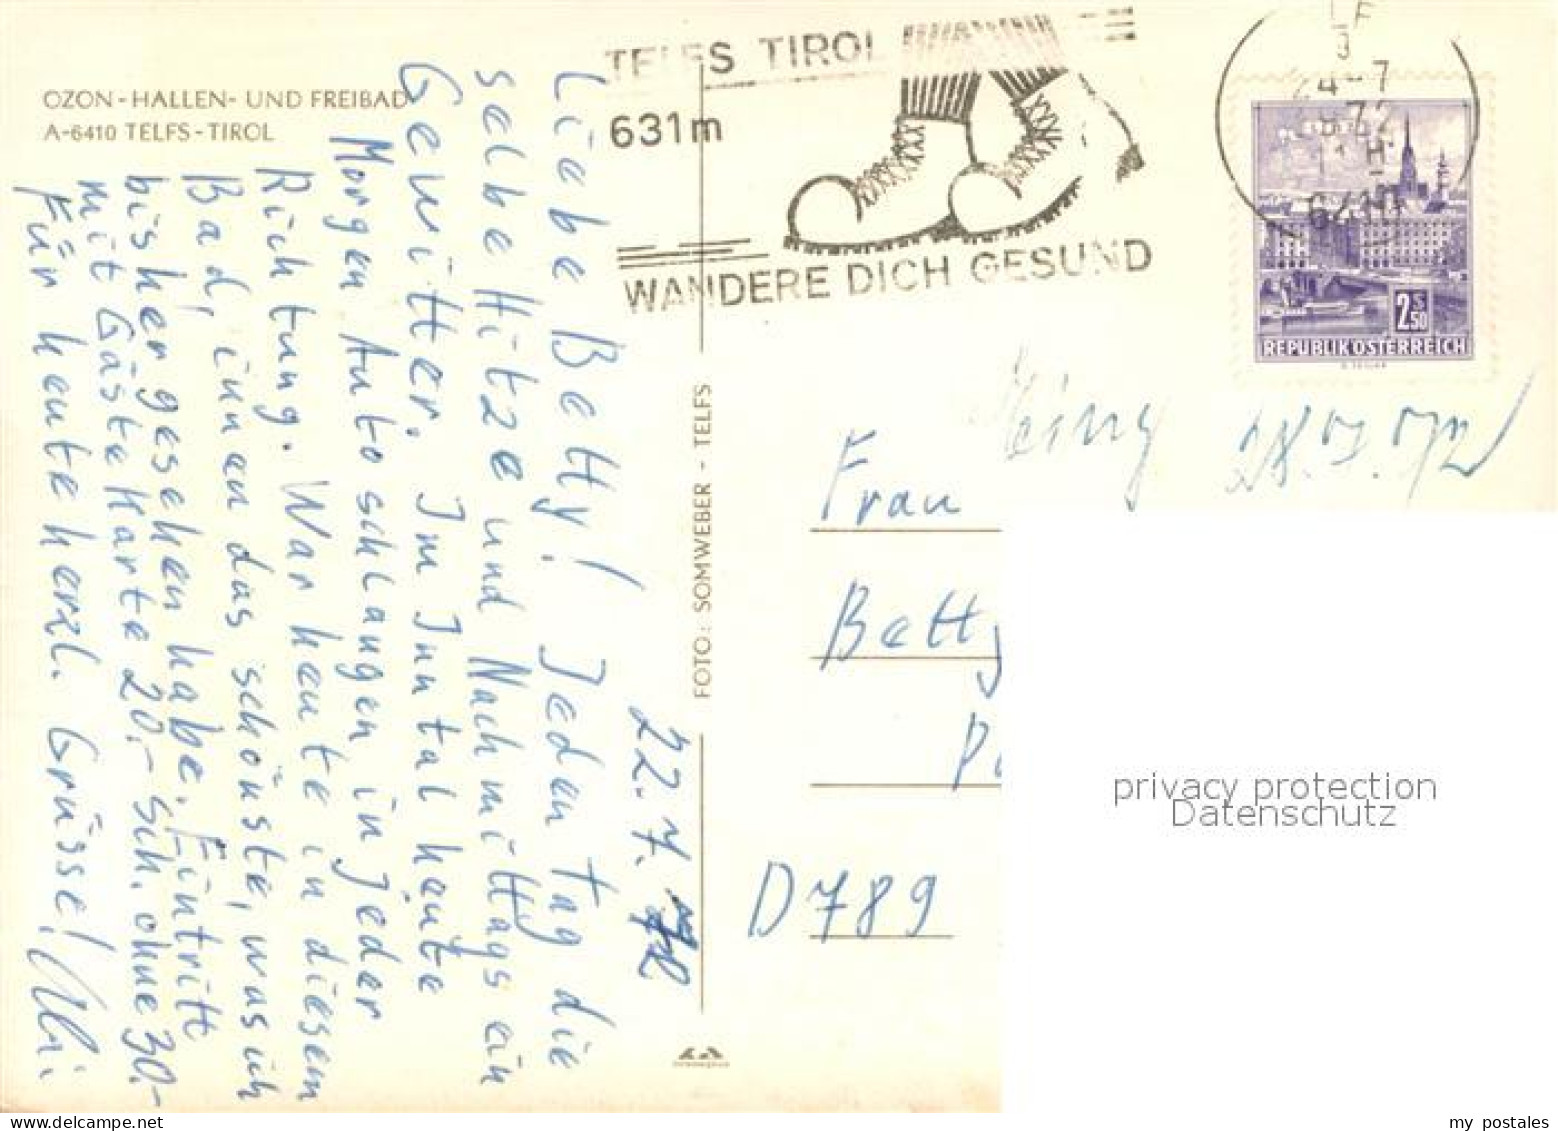 OZON - HALLEN- UND FREIBAD
A-6410 TELFS - TIROL
TELFS TIROL
631m
WANDERE DICH GESUND
24-7
72
6410
2 S 50
REPUBLIK ÖSTERREICH
28.7.72
22.7.72
Liebe Betty! Jeden Tag die
selbe Hitze und Nachmittags ein
Gewitter. Im Inntal heute
Morgen Autoschlangen in jeder
Richtung. War heute in diesem
Bad, innen das schönste, was ich
bisher gesehen habe. Eintritt
mit Gästekarte 20.- Sch. ohne 30.-
Für heute herzl. Grüsse!
FOTO: SOMWEBER - TELFS
Frau
Betty
D 789
privacy protection
Datenschutz
my postales